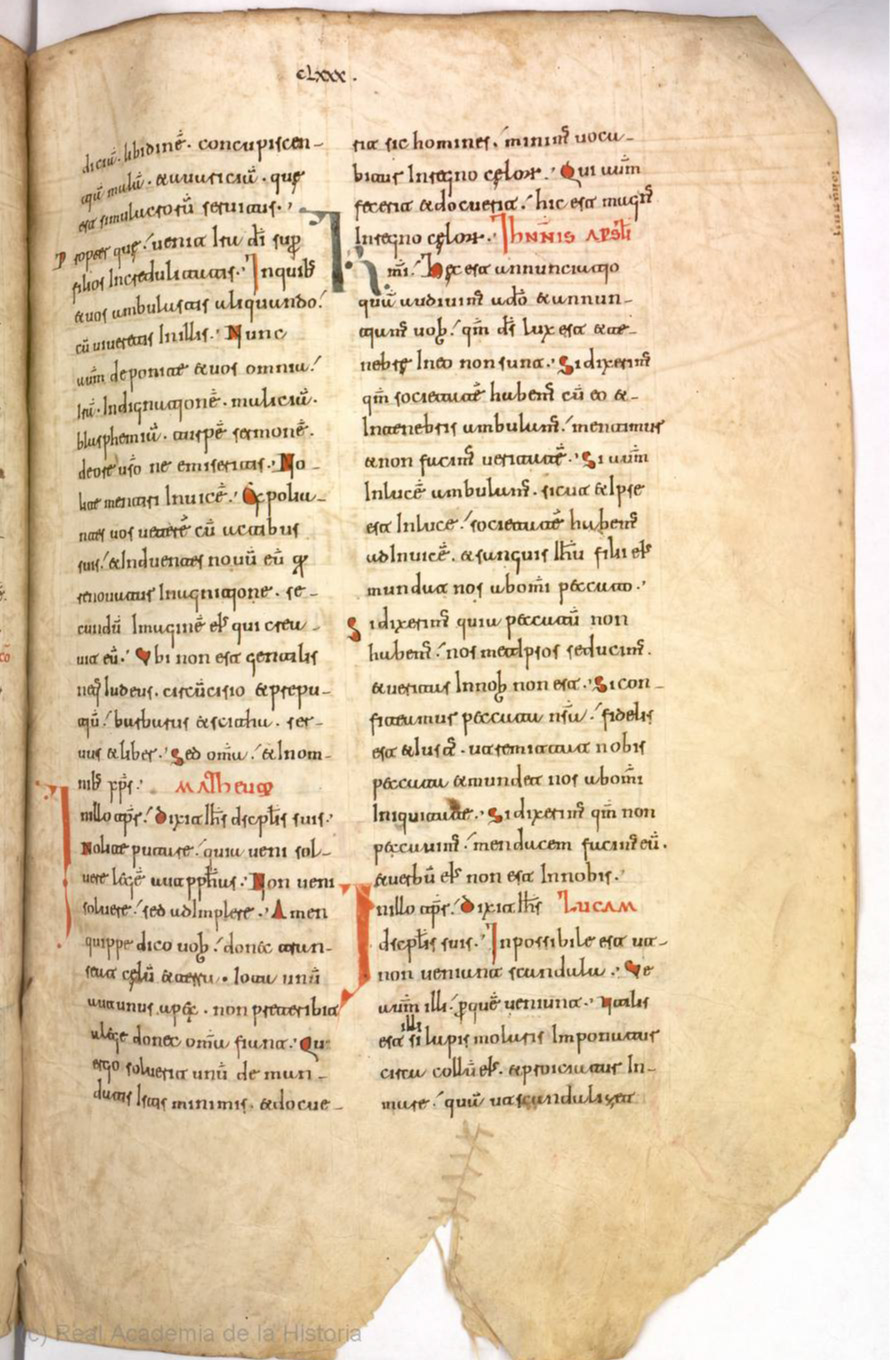 clxxx.
diciā. libidinē. concupiscen-
tiā malā. & auaritiā. que
est simulacrorū seruitus.
Propter que uenit ira dī sup
filios incredulitatis. Inquib;
& uos ambulastis aliquando.
cū uiueretis in illis. Nunc
aūm deponite & uos omnia.
irā. Indignationē. malitiā.
blasphemiā. turpē sermonē.
de ore uṡo ne emiseritis. No-
lite mentiri Inuicē. Expolia-
ntes uos ueterē cū actibus
suis. & Induentes nouū eū q̄
renouatur In agnitione. se-
cundū Imaginē eīs qui crea-
uit eū. Ubi non est gentilis
neq; Iudeus. circūcisio & prepu-
tiū. barbarus & scitha. ser-
uus & liber. Sed omīa. & In om-
nib; xp̄s. Matheum
Inillo tp̄re. Dixit ih̄s dscplīs suis.
Nolite putare quia ueni sol-
uere legē aut pph̄tas. Non ueni
soluere sed adImplere. Amen
quippe dico uob. donec tran-
seat celū & terra. Iota unū
aut unus apex. non preteribit
a lege donec omīa fiant. Qui
ergo soluerit unū de man-
datis Istis minimis. & docue-
rit sic homines. minim̄s uoca-
bitur In regno celor. Qui aūm
fecerit & docuerit. hic est magn̄s
In regno celor. Ihn̄nis apsl̄i
Kr̄mi. Hec est annunciatio
quā audiuim̄s ad̄o & annun-
tiam̄s uob. qm̄ dī lux est & te-
nebre In eo non sunt. Si dixerim̄s
qm̄ societatē habem̄s cū eo & -
In tenebris ambulam̄s. mentimur
& non facim̄s ueritatē. Si aūm
In lucē ambulam̄s. sicut & Ipse
est In luce. societatē habem̄s
ad Inuicē. & sanguis ih̄u filii eīs
mundat nos ab om̄i peccato.
Si dixerim̄s quia peccatū non
habem̄s. nosmet Ipsos seducim̄s.
& ueritas In nob non est. Si con-
fiteamur peccata n̄sa. fidelis
est & Iust. ut remittat nobis
peccata & mundet nos ab om̄i
Iniquitate. Si dixerim̄s qm̄ non
peccauim̄s. mendacem facim̄s eū.
& uerbū eīs non est In nobis.
Inillo tp̄re. Dixit ih̄s Lucam
dscplīs suis. Inpossibile est ut
non ueniant scandala. Ue
aūm illi. p̄ quē ueniunt. Utilis
est illi si lapis molaris Imponatur
circa collū eīs. & proiciatur In-
mare. quā ut scandalizet